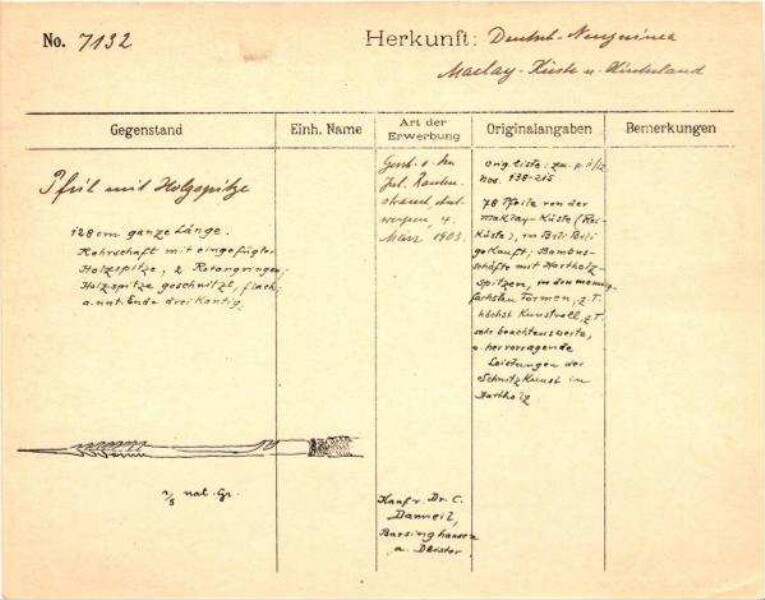 No. 7132
Herkunft: Deutsch-Neuguinea
Maclay-Küste u.
Gegenstand
Einh. Name
Art der
Erwerbung
Originalangaben
Bemerkungen
Pfeil mit Holzspitze
128 cm ganze Länge.
Rohrschaft mit eingefügter
Holzspitze, 2 Rotangringen;
Holzspitze geschnitzt, flach;
a. unt. Ende dreikantig.
1/5 nat. Gr.
März 1903.
Kauf v. Dr. C.
Barsinghausen
a. Deister
Orig. liste: zu
Nos. 138-215
78 Pfeile von der
Maklay-Küste (Rai-
Küste), in Bili Bili
gekauft; Bambus-
schäfte mit Hartholz-
spitzen, in den mannig-
fachsten Formen, z.T.
höchst kunstvoll, z.T.
sehr beachtenswerte,
u. hervorragende
Leistungen der
Schnitzkunst in
Hartholz.